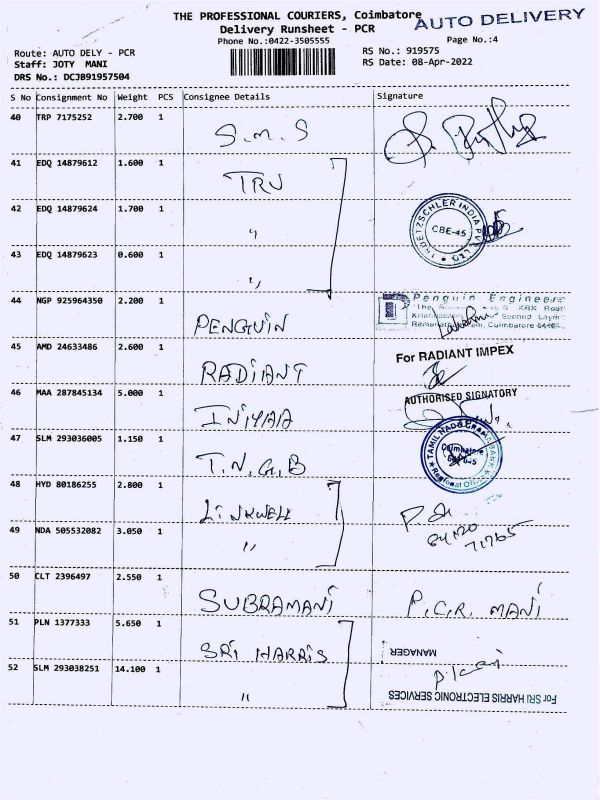 THE PROFESSIONAL COURIERS, Coimbatore
AUTO DELIVERY
Delivery Runsheet - PCR
Phone No.:0422-3505555
Page No.:4
Route: AUTO DELY - PCR
RS No.: 919575
Staff: JOTY MANI
RS Date: 08-Apr-2022
DRS No.: DCJB91957504
S No Consignment No Weight PCS Consignee Details Signature
40 TRP 7175252 2.700 1
S.M.S
41 EDQ 14879612 1.600 1
TRU
42 EDQ 14879624 1.700 1
"
CBE-45
43 EDQ 14879623 0.600 1
"
44 NGP 925964350 2.200 1
PENGUIN
Penguin Engineers
45 AMD 24633486 2.600 1
RADIANT
For RADIANT IMPEX
46 MAA 287845134 5.000 1
AUTHORISED SIGNATORY
47 SLM 293036005 1.150 1
T.N.G.B
Coimbatore
Regional Office
48 HYD 80186255 2.800 1
LINKWELL
49 NDA 505532082 3.050 1
"
50 CLT 2396497 2.550 1
SUBRAMANI
P.C.R. MANI
51 PLN 1377333 5.650 1
SRI HARRIS
MANAGER
52 SLM 293038251 14.100 1
"
For SRI HARRIS ELECTRONIC SERVICES